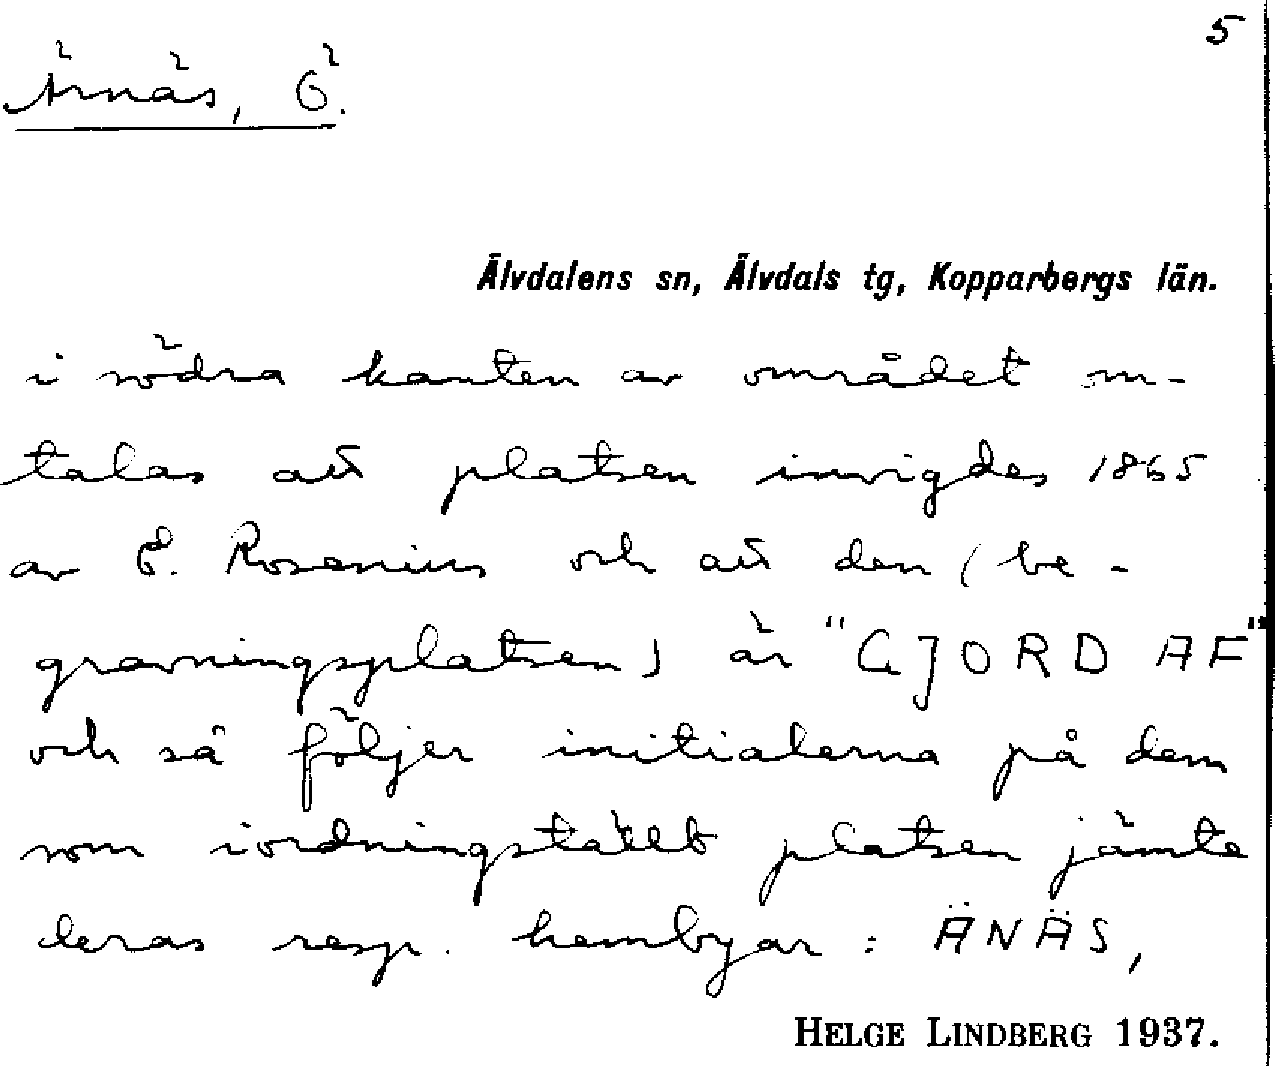 5
Ärnäs, Ö.
Älvdalens sn, Älvdals tg, Kopparbergs län.
i södra kanten av området om-
talas att platsen invigdes 1865
av E. Rosenius och att den (be-
gravningsplatsen) är "GJORD AF"
och så följer initialerna på dem
som iordningställt platsen jämte
deras resp. hembyar: ÄNÄS,
HELGE LINDBERG 1937.